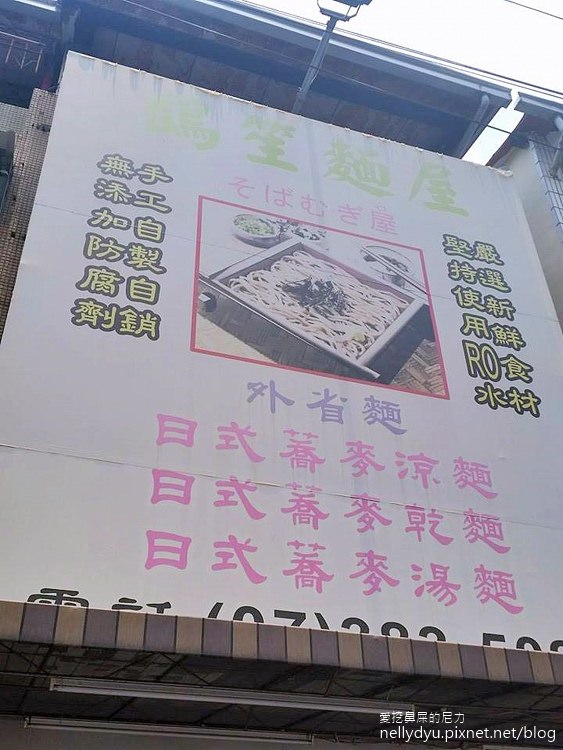 鶴笙麵屋
そばむぎ屋
手工自製自銷
無添加防腐劑
嚴選新鮮食材
堅持使用RO水
外省麵
日式蕎麥涼麵
日式蕎麥乾麵
日式蕎麥湯麵
電話(07)383-5
愛挖鼻屎的尼力
nellydyu.pixnet.net/blog